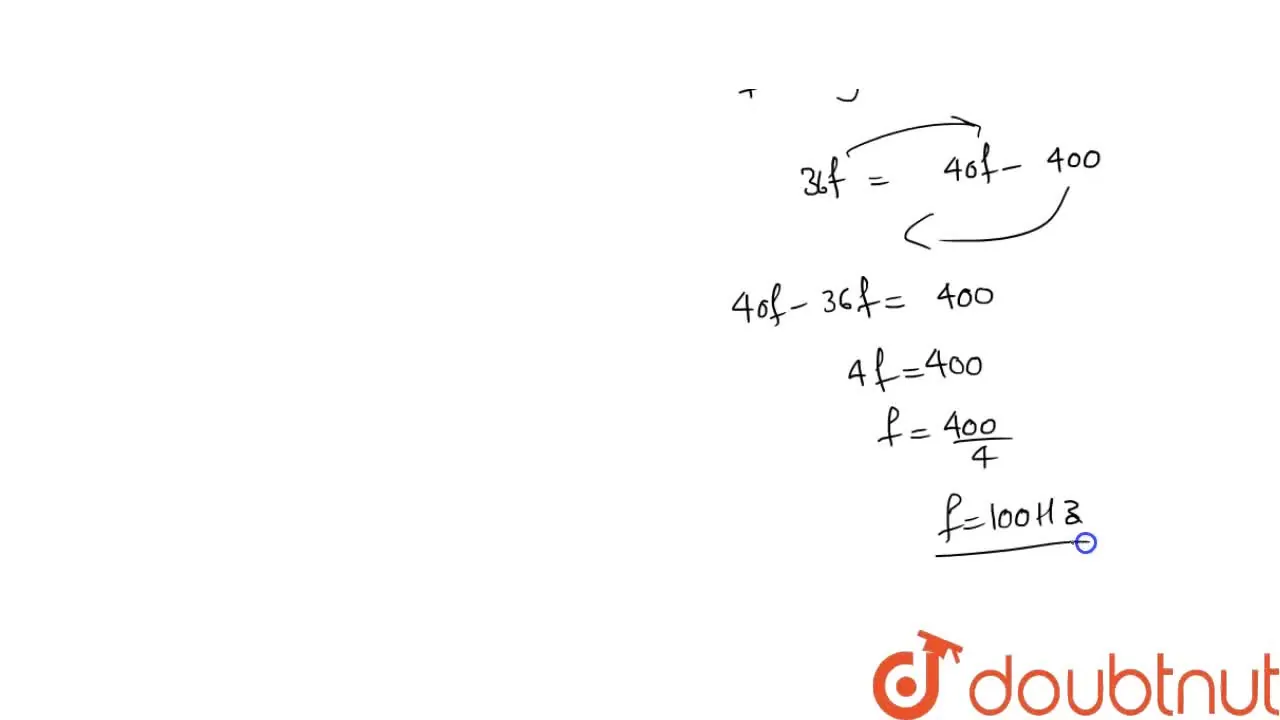 36f = 40f - 400
40f - 36f = 400
4f = 400
f = 400/4
f = 100 Hz
doubtnut